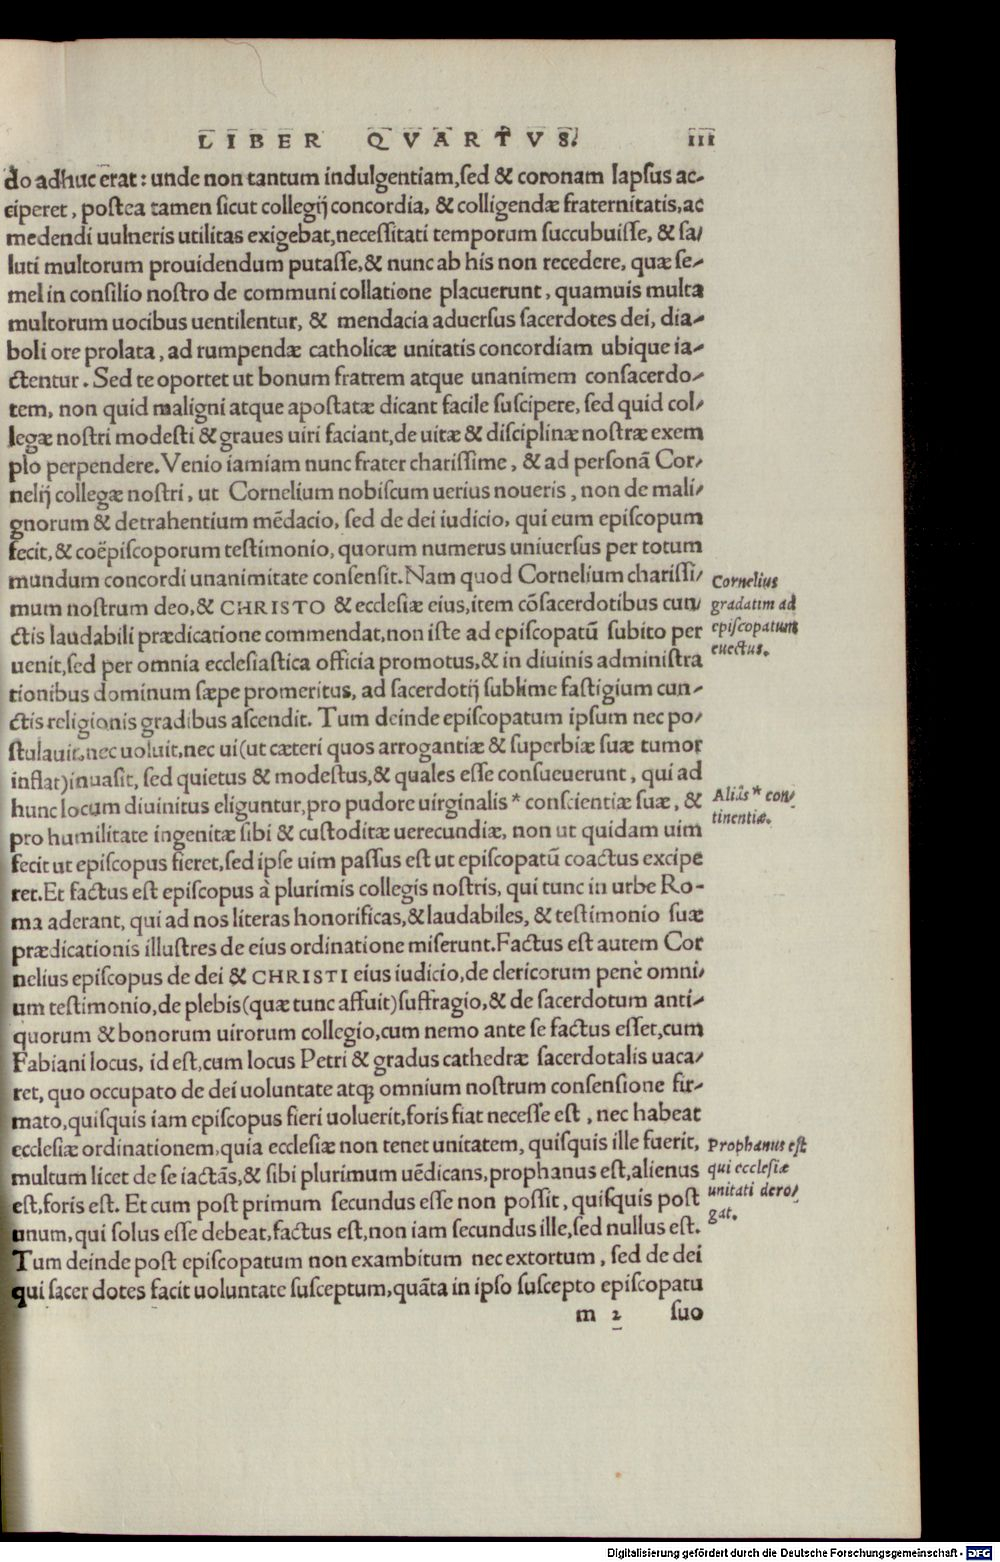 LIBER QVARTVS. III
do adhuc erat: unde non tantum indulgentiam, sed & coronam lapsus ac-
ciperet, postea tamen sicut collegij concordia, & colligendæ fraternitatis, ac
medendi uulneris utilitas exigebat, necessitati temporum succubuisse, & sa-
luti multorum prouidendum putasse, & nunc ab his non recedere, quæ se-
mel in consilio nostro de communi collatione placuerunt, quamuis multa
multorum uocibus uentilentur, & mendacia aduersus sacerdotes dei, dia-
boli ore prolata, ad rumpendæ catholicæ unitatis concordiam ubique ia-
ctentur. Sed te oportet ut bonum fratrem atque unanimem consacerdo-
tem, non quid maligni atque apostatæ dicant facile suscipere, sed quid col-
legæ nostri modesti & graues uiri faciant, de uitæ & disciplinæ nostræ exem
plo perpendere. Venio iamiam nunc frater charissime, & ad personā Cor-
nelij collegæ nostri, ut Cornelium nobiscum uerius noueris, non de mali-
gnorum & detrahentium mēdacio, sed de dei iudicio, qui eum episcopum
fecit, & coëpiscoporum testimonio, quorum numerus uniuersus per totum
mundum concordi unanimitate consensit. Nam quod Cornelium charissi-
mum nostrum deo, & CHRISTO & ecclesiæ eius, item cōsacerdotibus cun-
ctis laudabili prædicatione commendat, non iste ad episcopatū subito per
uenit, sed per omnia ecclesiastica officia promotus, & in diuinis administra
tionibus dominum sæpe promeritus, ad sacerdotij sublime fastigium cun-
ctis religionis gradibus ascendit. Tum deinde episcopatum ipsum nec po-
stulauit, nec uoluit, nec ui (ut cæteri quos arrogantiæ & superbiæ suæ tumor
inflat) inuasit, sed quietus & modestus, & quales esse consueuerunt, qui ad
hunc locum diuinitus eliguntur, pro pudore uirginalis * conscientiæ suæ, &
pro humilitate ingenitæ sibi & custoditæ uerecundiæ, non ut quidam uim
fecit ut episcopus fieret, sed ipse uim passus est ut episcopatū coactus excipe
ret. Et factus est episcopus à plurimis collegis nostris, qui tunc in urbe Ro-
ma aderant, qui ad nos literas honorificas, & laudabiles, & testimonio suæ
prædicationis illustres de eius ordinatione miserunt. Factus est autem Cor
nelius episcopus de dei & CHRISTI eius iudicio, de clericorum penè omni-
um testimonio, de plebis (quæ tunc affuit) suffragio, & de sacerdotum anti-
quorum & bonorum uirorum collegio, cum nemo ante se factus esset, cum
Fabiani locus, id est, cum locus Petri & gradus cathedræ sacerdotalis uaca-
ret, quo occupato de dei uoluntate atq; omnium nostrum consensione fir-
mato, quisquis iam episcopus fieri uoluerit, foris fiat necesse est, nec habeat
ecclesiæ ordinationem, quia ecclesiæ non tenet unitatem, quisquis ille fuerit,
multum licet de se iactās, & sibi plurimum uēdicans, prophanus est, alienus
est, foris est. Et cum post primum secundus esse non possit, quisquis post
unum, qui solus esse debeat, factus est, non iam secundus ille, sed nullus est.
Tum deinde post episcopatum non exambitum nec extortum, sed de dei
qui sacer dotes facit uoluntate susceptum, quāta in ipso suscepto episcopatu
m 2 suo
Cornelius
gradatim ad
episcopatum
euectus.
Aliâs * con-
tinentiæ.
Prophanus est
qui ecclesiæ
unitati dero-
gat.
Digitalisierung gefördert durch die Deutsche Forschungsgemeinschaft - DFG